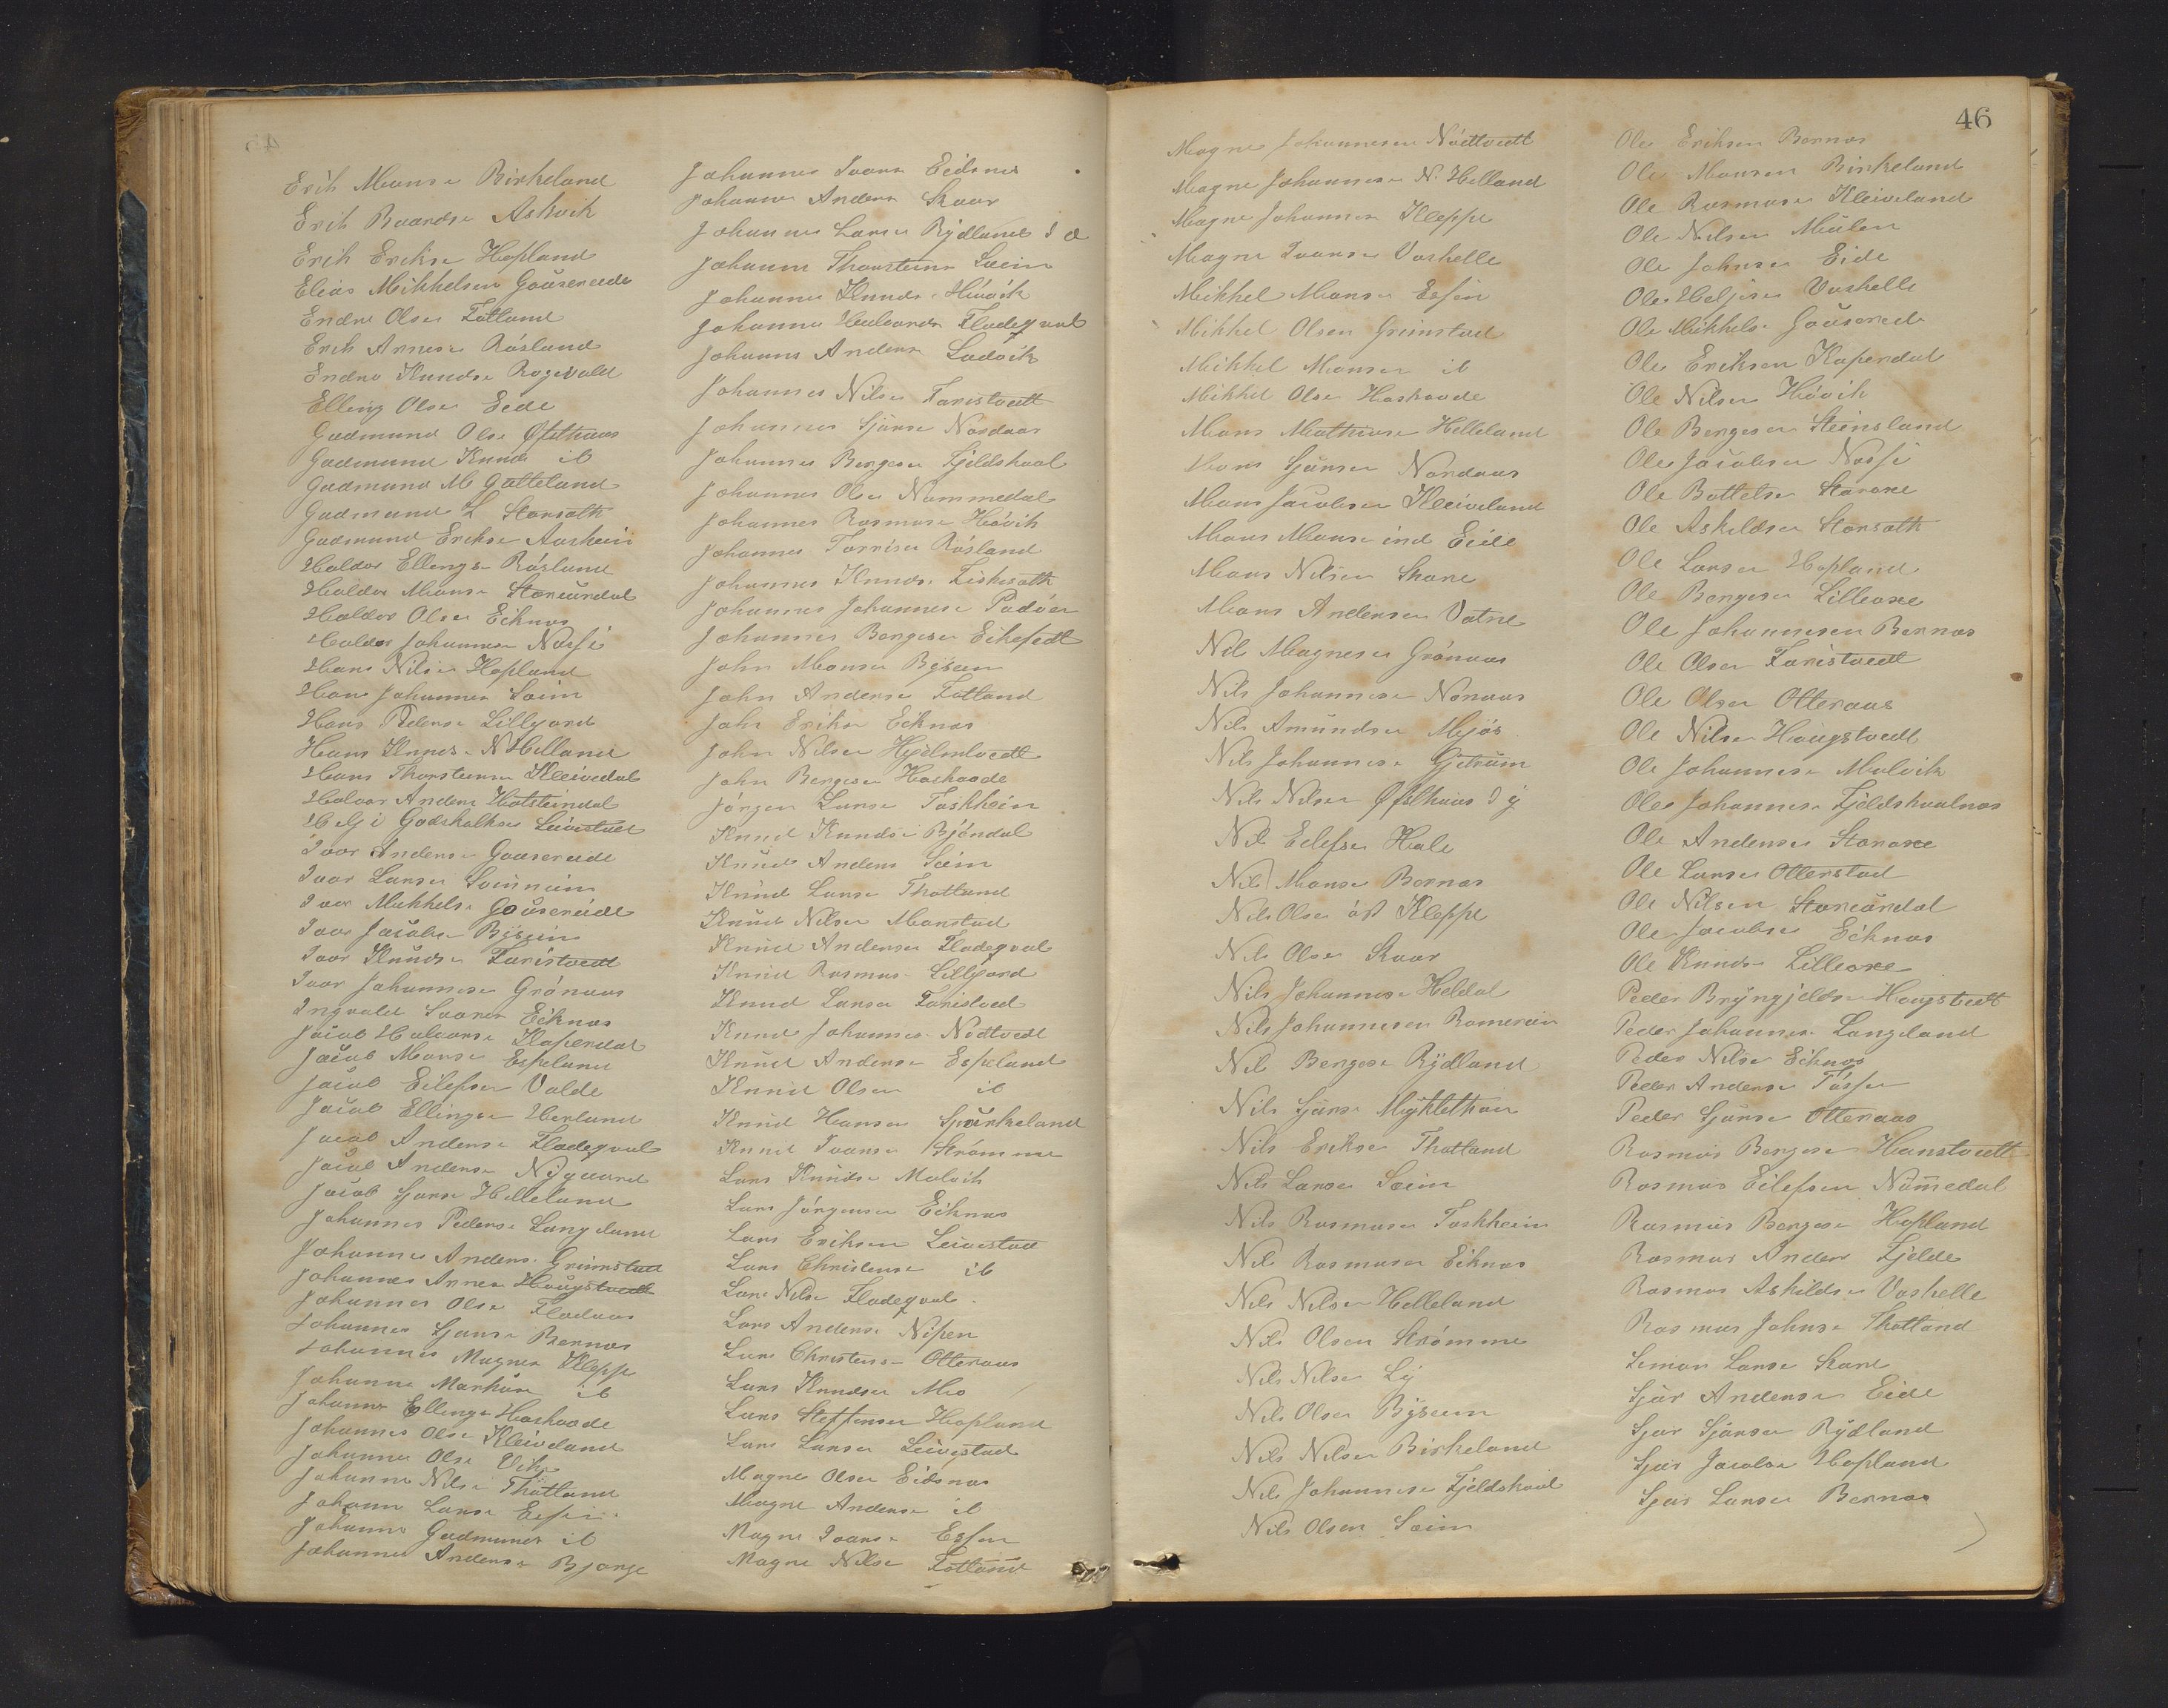 Erik Monse Birkeland
Erik Baardse Askvik
Erik Erikse Hopland
Elias Mikkelsen Gousereide
Endre Olse Totland
Erik Annese Røsland
Endre Knudse Rogevold
Elling Olse Eide
Gudmund Olse Øfsthuus
Gudmund Knuds ib
Gudmund M Gotteland
Gudmund L Storsæth
Gudmund Erikse Aarhein
Haldor Ellingse Røsland
Haldor Monse Storeurdal
Haldor Olse Eiknæs
Haldor Johannese Nøsse
Hans Nilse Hopland
Hans Johannese Søim
Hans Pederse Lillejord
Hans Knuds N Helland
Hans Thorsteinse Kleivedal
Halvor Anderse Hatsteindal
Helje Godskalkse Leivestad
Ivar Anderse Gouserede
Ivar Larse Søim
Ivar Mikkelse Gouserede
Ivar Jacobse Byssein
Ivar Knudse Tveistvedt
Ivar Johannese Grønaas
Ingvald Ivarse Eiknæs
Jacob Halvorse Kaperdal
Jacob Monse Espeland
Jacob Eilefse Valde
Jacob Ellingse Herland
Jacob Anderse Fladeqval
Jacob Anderse Nygaard
Jacob Sjurse Helleland
Johannes Pederse Langeland
Johannes Anderse Grimstad
Johannes Annese Hougstvedt
Johannes Olse Fladaas
Johannes Sjurse Bornæs
Johannes Magnese Kleppe
Johannes Markuse ib
Johannes Ellingse Haskaade
Johannes Olse Kleiveland
Johannes Olse Vik
Johannes Nilse Thotland
Johannes Larse Espe
Johannes Gudmunds ib
Johannes Anderse Bjørge
Johannes Ivarse Eidsnes
Johannes Anderse Skaar
Johannes Larse Rydland
Johannes Thorsteinse Søim
Johannes Knudse Høvik
Johannes Halvorse Fladeqval
Johannes Anderse Ladvik
Johannes Nilse Tveistvedt
Johannes Sjurse Nordaas
Johannes Bergese Fjeldskaal
Johannes Olse Nammedal
Johannes Rasmuse Høvik
Johannes Torrise Røsland
Johannes Knudse Fiskesæth
Johannes Johannese Padøen
Johannes Bergese Eikefedt
John Monse Byseen
John Anderse Totland
John Erikse Eiknæs
John Nilse Hjelmtvedt
John Bergese Haskaade
Jørgen Larse Toskhein
Knud Knudse Bjøndal
Knud Anderse Søim
Knud Larse Thotland
Knud Nilse Monstad
Knud Anderse Fladeqval
Knud Rasmuse Lillejord
Knud Larse Tveistvedt
Knud Johannes Nøttvedt
Knud Anderse Espeland
Knud Olse ib
Knud Hansen Spurkeland
Knud Ivarse Strømme
Lars Knudse Malvik
Lars Jørgense Eiknæs
Lars Eriksen Leivestad
Lars Christense ib
Lars Nilse Fladeqval
Lars Anderse Nipen
Lars Christense Otteraas
Lars Knudsen Mio
Lars Steffensen Hopland
Lars Larsen Leivestad
Magne Olsen Eidsnæs
Magne Anderse ib
Magne Ivarse Espe
Magne Nilse Totland
46
Magne Johannesen Nøttvedt
Magne Johannese N. Helland
Magne Johannese Kleppe
Magne Ivarse Vashelle
Mikkel Monse Espe
Mikkel Olsen Grimstad
Mikkel Monsen ib
Mikkel Olse Haskaade
Mons Mathiase Helleland
Mons Sjursen Nordaas
Mons Jacobsen Kleiveland
Mons Monse ind Eide
Mons Nilsen Skare
Mons Andersen Vatne
Nils Magnesen Grønaas
Nils Johannese Nonaas
Nils Amundsen Mjøs
Nils Johannese Gjerum
Nils Nilsen Øfsthuus
Nils Eilefse Hale
Nils Monsen Bornæs
Nils Olse øst Kleppe
Nils Olse Skaar
Nils Johannese Heldal
Nils Johannesen Romerein
Nils Bergese Rydland
Nils Sjurse Myklethun
Nils Erikse Thotland
Nils Larse Søim
Nils Rasmuse Toskhein
Nils Rasmuse Eiknæs
Nils Nilsen Helleland
Nils Olsen Strømme
Nils Nilse Ly
Nils Olsen Byseen
Nils Nilsen Birkeland
Nils Johannese Fjeldskaal
Nils Olsen Søim
Ole Eriksen Bornæs
Ole Monsen Birkeland
Ole Rasmuse Kleiveland
Ole Nilsen Mülen
Ole Johnsen Eide
Ole Heljese Vashelle
Ole Mikkels Gouserede
Ole Eriksen Kaperdal
Ole Nilsen Høvik
Ole Bergesen Steinsland
Ole Jacobsen Nøsse
Ole Bottelse Storaxe
Ole Askildsen Storsæth
Ole Larsen Hopland
Ole Bergese Lilleaxe
Ole Johannesen Bornæs
Ole Olsen Tveistvedt
Ole Olsen Otteraas
Ole Nilsen Hougstvedt
Ole Johannese Malvik
Ole Johannese Fjeldskaalnæs
Ole Andersen Storaxe
Ole Larsen Ottenstad
Ole Nilsen Storeurdal
Ole Jacobse Eiknæs
Ole Knudse Lilleaxe
Peder Bryngjeldse Hougstvedt
Peder Johannese Langeland
Peder Nilse Eiknæs
Peder Anderse Tøsse
Peder Sjurse Otteraas
Rasmus Bergese Hanstvedt
Rasmus Eilefsen Nammedal
Rasmus Bergese Hopland
Rasmus Anders Fjelde
Rasmus Askildse Vashelle
Rasmus Johnse Thotland
Simon Larse Skare
Sjur Andersen Eide
Sjur Sjursen Rydland
Sjur Jacobse Hopland
Sjur Larsen Bornæs